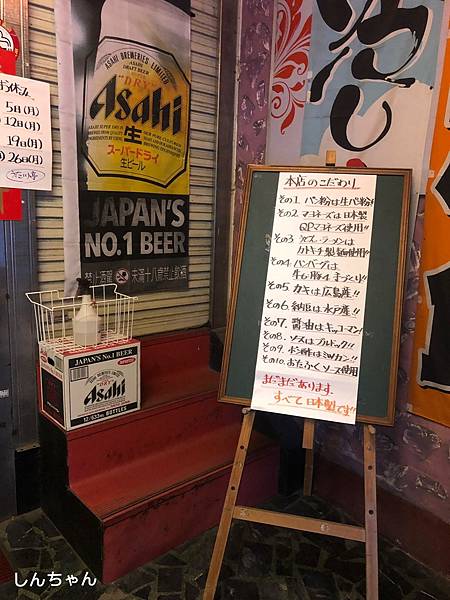 お休み
5日(月)
12日(月)
19日(月)
26日(月)
ASAHI BREWERIES LIMITED
DRAFT BEER
"DRY"
Asahi
生
スーパードライ
生ビール
JAPAN'S
NO.1 BEER
禁止酒駕
未滿十八歲禁止飲酒
JAPAN'S No.1 BEER
Asahi
12/633ml BOTTLES
本店のこだわり
その1. パン粉は生パン粉!!
その2 マヨネーズは日本製
QPマヨネーズ使用!!
その3
ラーメンは
カトキチ製麺使用!!
その4 ハンバーグは
牛6.豚4
その5 カキは広島産!!
その6 納豆は水戸産!!
その7. 醤油はキッコーマン!
その8. ソースはブルドック!!
その9. ポン酢はミツカン!!
その10. おたふくソース使用
まだまだあります.
すべて日本製です!!
しんちゃん